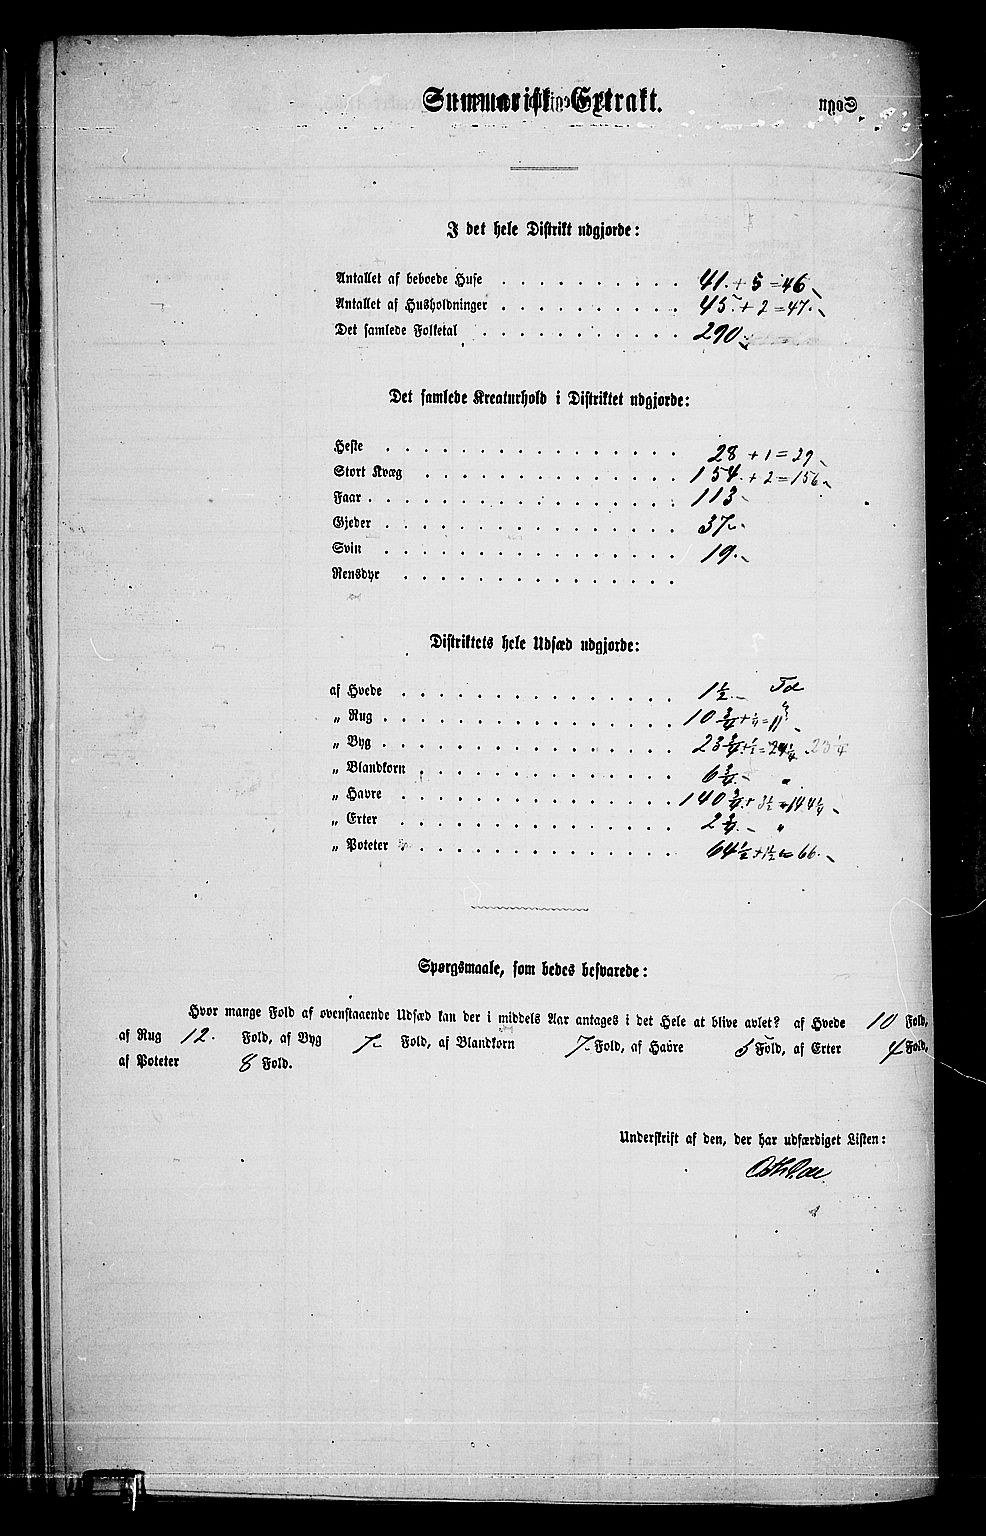 Summarisk Extrakt.
I det hele Distrikt udgjorde:
Antallet af beboede Huse . . . . . . . . . . 41. + 5 = 46
Antallet af Husholdninger . . . . . . . . . . 45. + 2 = 47.
Det samlede Folketal . . . . . . . . . . . 290.
Det samlede Kreaturhold i Distriktet udgjorde:
Heste . . . . . . . . . . . . . . . . 28 + 1 = 29
Stort Kvæg . . . . . . . . . . . . . . 154. + 2 = 156.
Faar . . . . . . . . . . . . . . . . . 113
Gjeder . . . . . . . . . . . . . . . . 37.
Svin . . . . . . . . . . . . . . . . 19.
Rensdyr . . . . . . . . . . . . . . .
Distriktets hele Udsæd udgjorde:
af Hvede . . . . . . . . . . . . . . . 1 1/2. Td
„ Rug . . . . . . . . . . . . . . . . 10 3/4
„ Byg . . . . . . . . . . . . . . . . 23 3/4 + 1/2 = 24 1/4
„ Blandkorn . . . . . . . . . . . . . . 6 3/4. "
„ Havre . . . . . . . . . . . . . . . 140 3/4. + 3 1/2 = 144 1/4
„ Erter . . . . . . . . . . . . . . . 2 3/4. "
„ Poteter . . . . . . . . . . . . . . . 64 1/2 + 1 1/2 = 66.
Spørgsmaale, som bedes besvarede:
Hvor mange Fold af ovenstaaende Udsæd kan der i middels Aar antages i det Hele at blive avlet? af Hvede 10 Fold,
af Rug 12. Fold, af Byg 7 Fold, af Blandkorn 7 Fold, af Havre 5 Fold, af Erter 4 Fold,
af Poteter 8 Fold.
Underskrift af den, der har udfærdiget Listen: